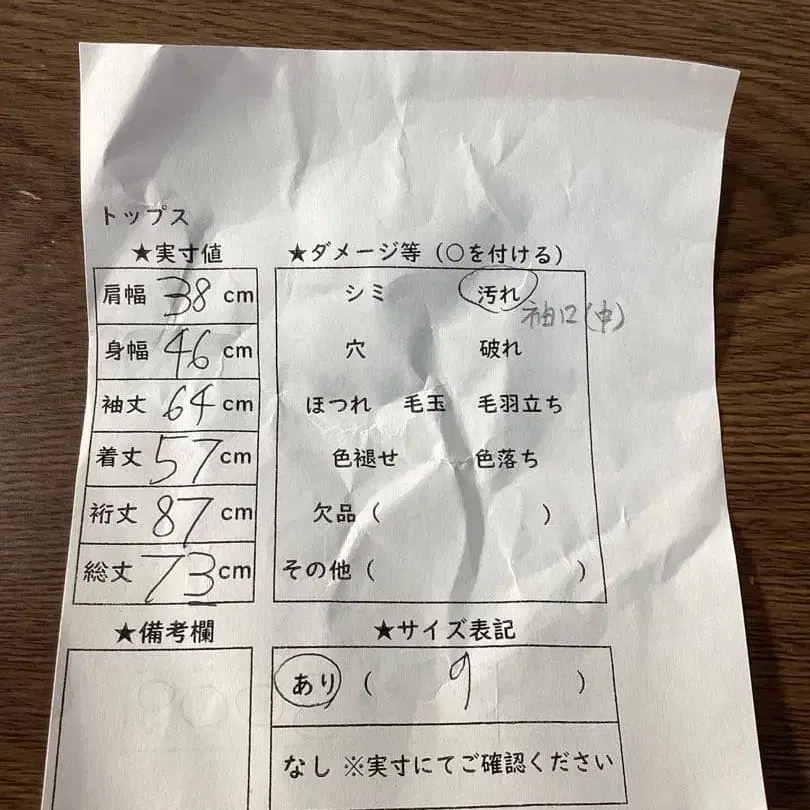 トップス
★実寸値
肩幅 38 cm
身幅 46 cm
袖丈 64 cm
着丈 57 cm
裄丈 87 cm
総丈 73 cm
★ダメージ等（○を付ける）
シミ 汚れ
袖口(中)
穴 破れ
ほつれ 毛玉 毛羽立ち
色褪せ 色落ち
欠品（ ）
その他（ ）
★備考欄
★サイズ表記
あり（ 9 ）
なし ※実寸にてご確認ください